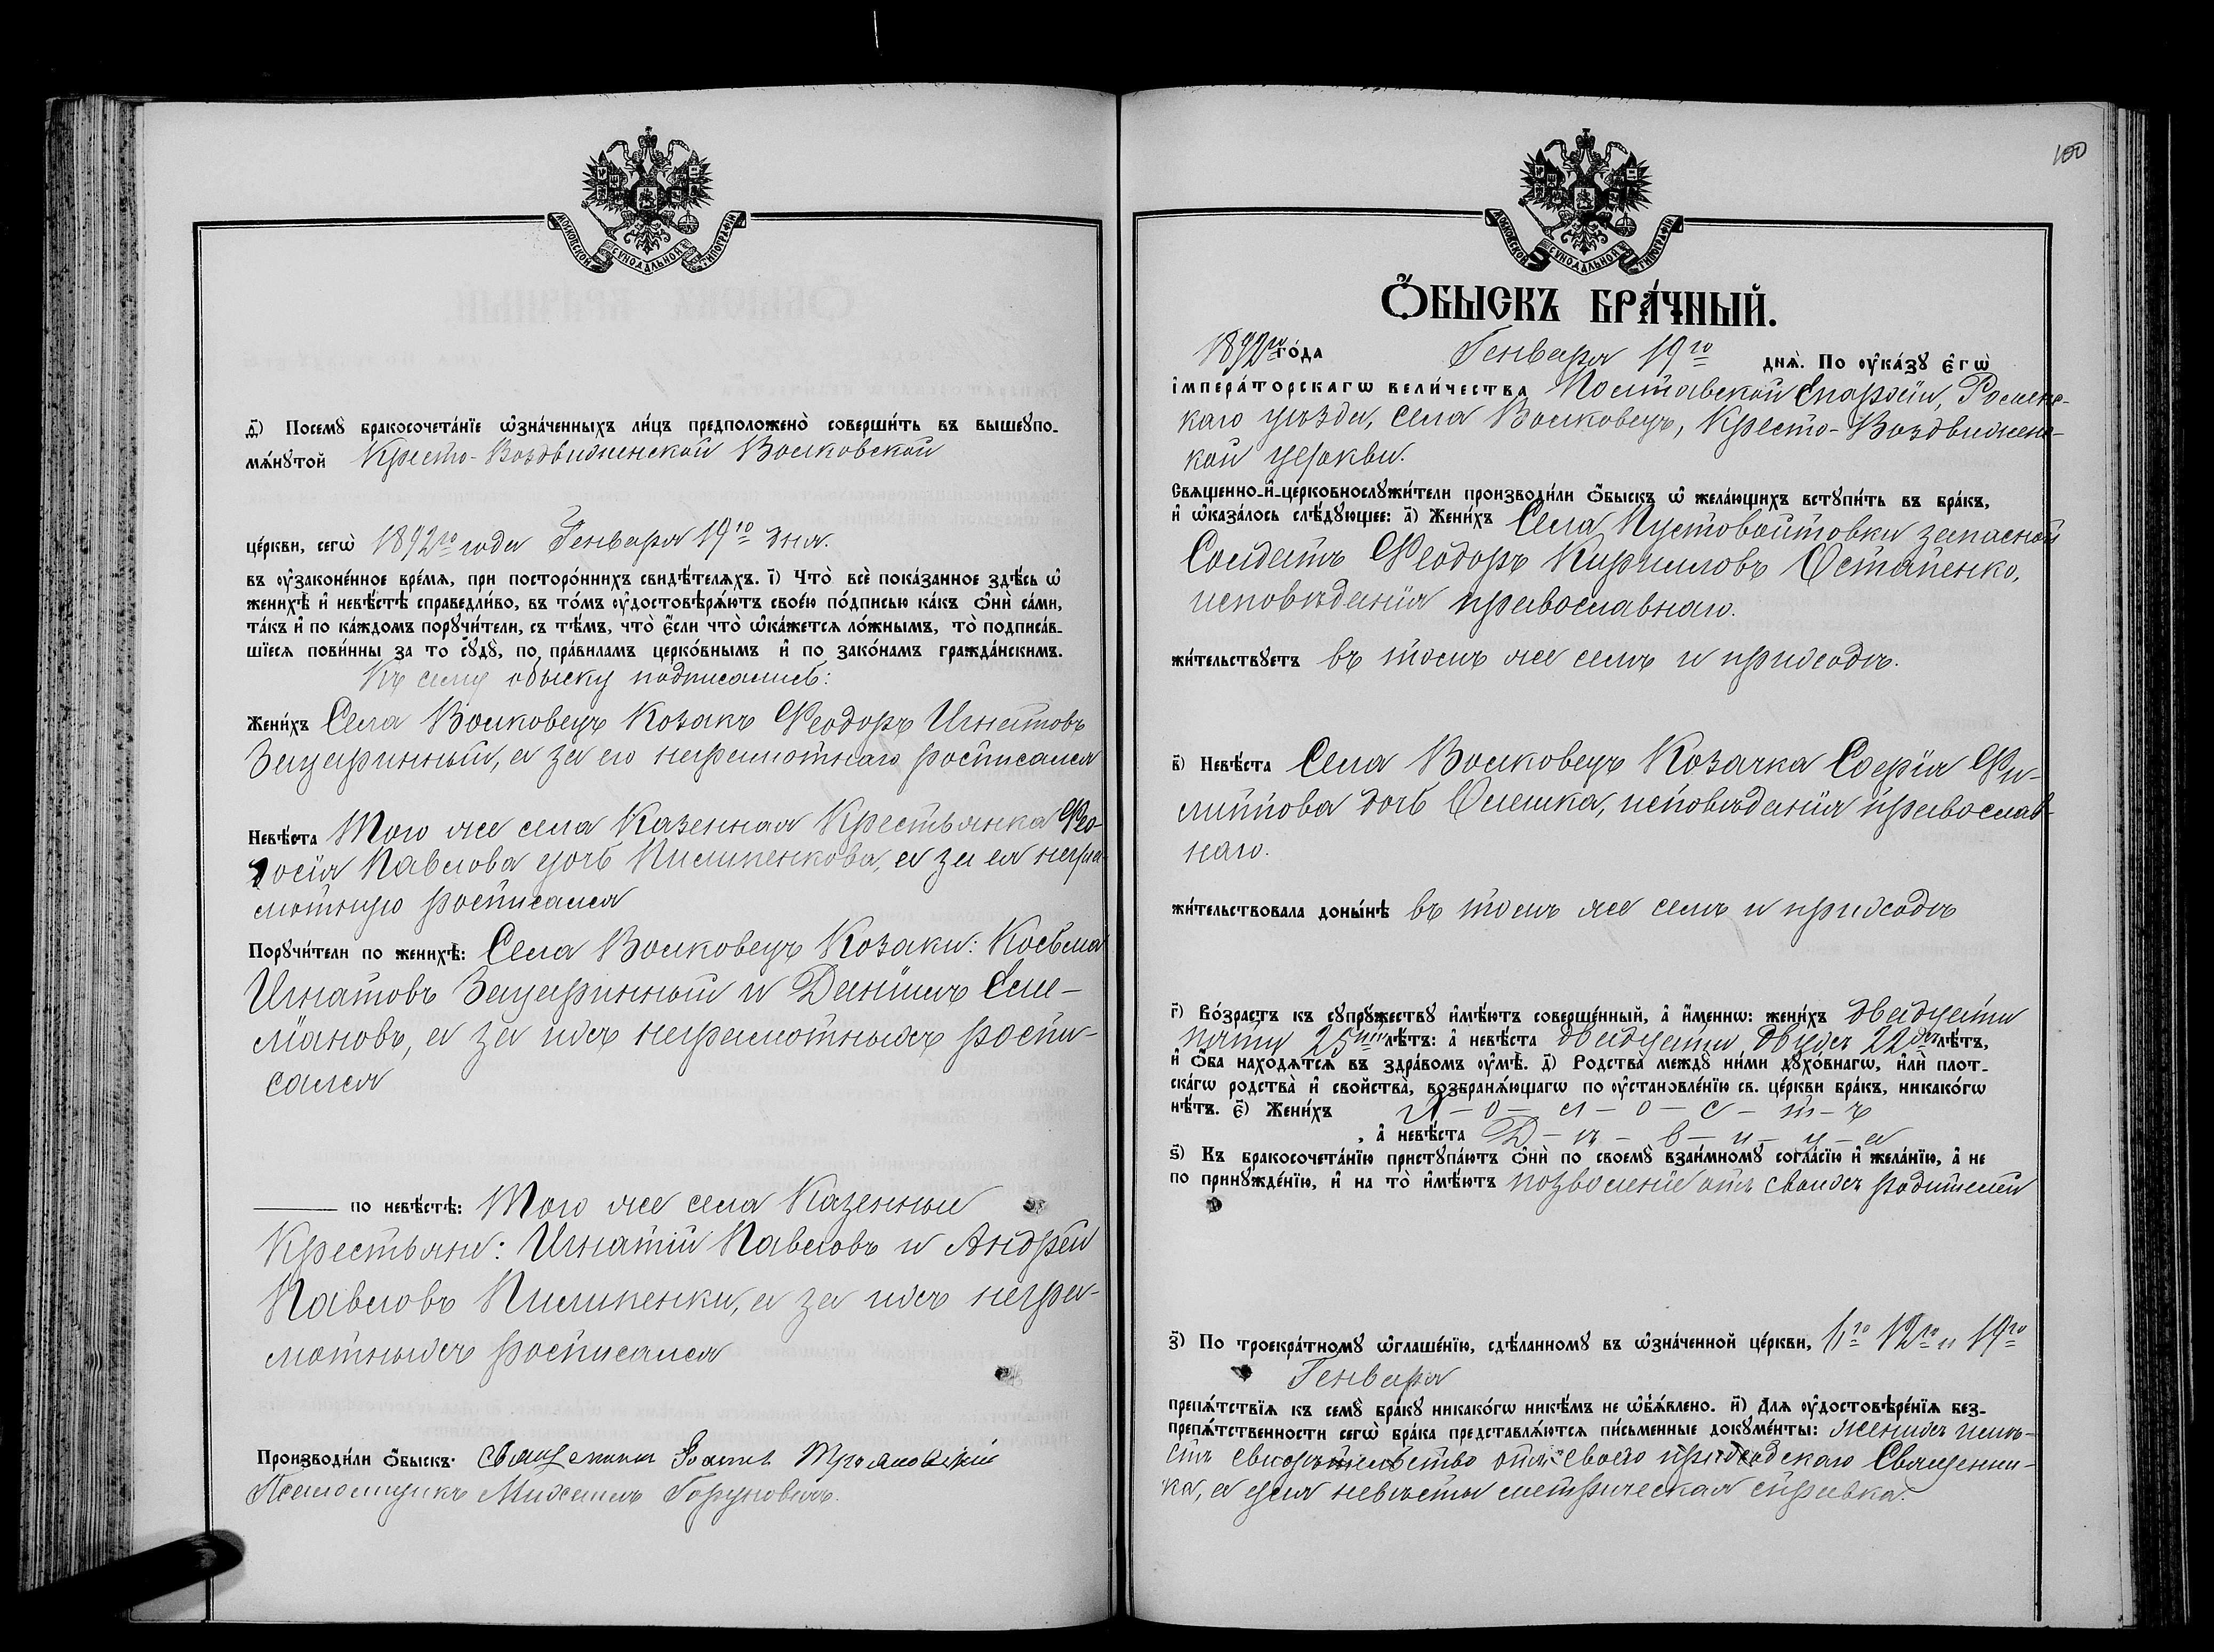 МОСКОВСКОЙ СѴНОДАЛЬНОЙ ТИПОГРАФІИ
д҃) Посемꙋ бракосочета́нїе ѡ҆зна́ченныхъ ли́цъ предположено̀ соверши́ть въ вышеꙋпо-
мѧ́нꙋтой Кресто-Воздвиженской Волковской
це́ркви, сегѡ̀ 1892го года Генваря 19го дня.
въ ᲂу҆законе́нное вре́мѧ, при посторо́ннихъ свидѣ́телѧхъ. і҃) Что̀ всѐ пока́занное здѣ́сь ѡ҆
женихѣ̀ и҆ невѣ́стѣ справедли́во, въ то́мъ ᲂу҆достовѣрѧ́ютъ свое́ю по́дписью ка́къ ѻ҆нѝ са́ми,
та́къ и҆ по ка́ждомъ порꙋчи́тели, съ тѣ́мъ, что̀ є҆́сли что̀ ѡ҆ка́жетсѧ ло́жнымъ, то̀ подписа́в-
шїесѧ пови́нны за то сꙋдꙋ̀, по пра́виламъ церко́внымъ и҆ по зако́намъ гражда́нскимъ.
Къ сему обыску подписались:
Жени́хъ Села Волковецъ Козакъ Феодоръ Игнатовъ
Зацаринный, а за его неграмотнаго росписался
Невѣ́ста Того же села Казенная Крестьянка Фео-
досія Павлова дочь Пилипенкова, а за ея негра-
мотную росписался
Порꙋчи́тели по женихѣ̀: Села Волковецъ Козаки: Косьма
Игнатовъ Зацаринный и Даніилъ Еме-
ліановъ, а за ихъ неграмотныхъ роспи-
сался
по невѣ́стѣ: Того же села Казенные
Крестьяне: Игнатій Павловъ и Андрей
Павловъ Пилипенки, а за ихъ негра-
мотныхъ росписался
Производи́ли ѻ҆́быскъ: Священникъ Іоаннъ Трояновскій
Псаломщикъ Михаилъ Горуновичъ.
100
МОСКОВСКОЙ СѴНОДАЛЬНОЙ ТИПОГРАФІИ
Ѻ҆́БЫСКЪ БРА́ЧНЫЙ.
1892го го́да Генваря 19го днѧ̀. По ᲂу҆ка́зꙋ є҆гѡ̀
і҆мпера́торскагѡ вели́чества Полтавской Епархіи, Роменс-
каго уѣзда, села Волковецъ, Кресто-Воздвиженс-
кой церкви.
Свѧщенно-и҆-церковнослꙋжи́тели производи́ли ѻ҆́быскъ ѡ҆ жела́ющихъ встꙋпи́ть въ бра́къ,
и҆ ѡ҆каза́лось слѣ́дꙋющее: а҃) Жени́хъ Села Пустовойтовки запасной
Солдатъ Феодоръ Кирилловъ Остапенко,
исповѣданія православнаго.
жи́тельствꙋетъ въ томъ же селѣ и приходѣ.
в҃) Невѣ́ста Села Волковецъ Козачка Софія Фи-
липпова дочь Олешка, исповѣданія православ-
наго.
жи́тельствовала доны́нѣ въ томъ же селѣ и приходѣ
г҃) Во́зрастъ къ сꙋпрꙋ́жествꙋ и҆мѣ́ютъ соверше́нный, а҆ и҆́меннѡ: жени́хъ двадцати
пяти 25ти лѣ́тъ: а҆ невѣ́ста двадцати двухъ 22хъ лѣ́тъ,
и҆ ѻ҆́ба нахо́дѧтсѧ въ здра́вомъ ᲂу҆мѣ̀. д҃) Родства̀ междꙋ̀ ни́ми дꙋхо́внагѡ, и҆лѝ плот-
ска́гѡ родства̀ и҆ свойства̀, возбранѧ́ющагѡ по ᲂу҆становле́нїю св. це́ркви бра́къ, никако́гѡ
нѣ́тъ. є҃) Жени́хъ Х-о-л-о-с-т-ъ
, а҆ невѣ́ста Д-ѣ-в-и-ц-а
ѕ҃) Къ бракосочета́нїю пристꙋпа́ютъ ѻ҆нѝ по своемꙋ̀ взаи́мномꙋ согла́сїю и҆ жела́нїю, а҆ не
по принꙋжде́нїю, и҆ на то̀ и҆мѣ́ютъ позволеніе отъ своихъ родителей
з҃) По троекра́тномꙋ ѡ҆глаше́нїю, сдѣ́ланномꙋ въ ѡ҆зна́ченной це́ркви, 6го 12го и 19го
Генваря
препѧ́тствїѧ къ семꙋ̀ бра́кꙋ никако́гѡ никѣ́мъ не ѡ҆б̾ѧ́влено. и҃) Длѧ ᲂу҆достовѣре́нїѧ без-
препѧ́тственности сегѡ̀ бра́ка представлѧ́ютсѧ пи́сьменные докꙋме́нты: женихъ имѣ-
етъ свидѣтельство отъ своего приходскаго Священни-
ка, а для невѣсты метрическая справка.